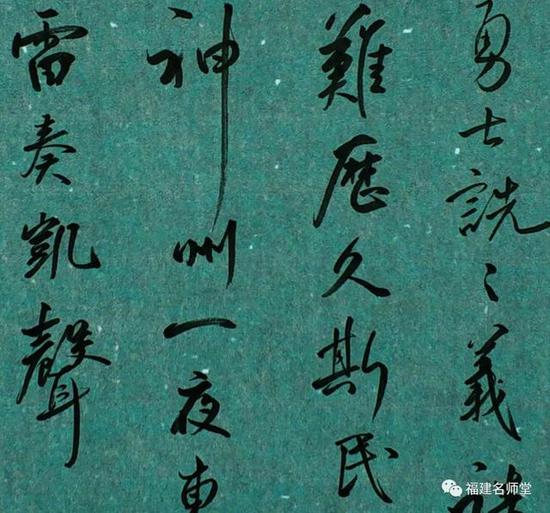 勇士詵〻義
難歷久斯民
神州一夜東
雷奏凱聲
福建名师堂